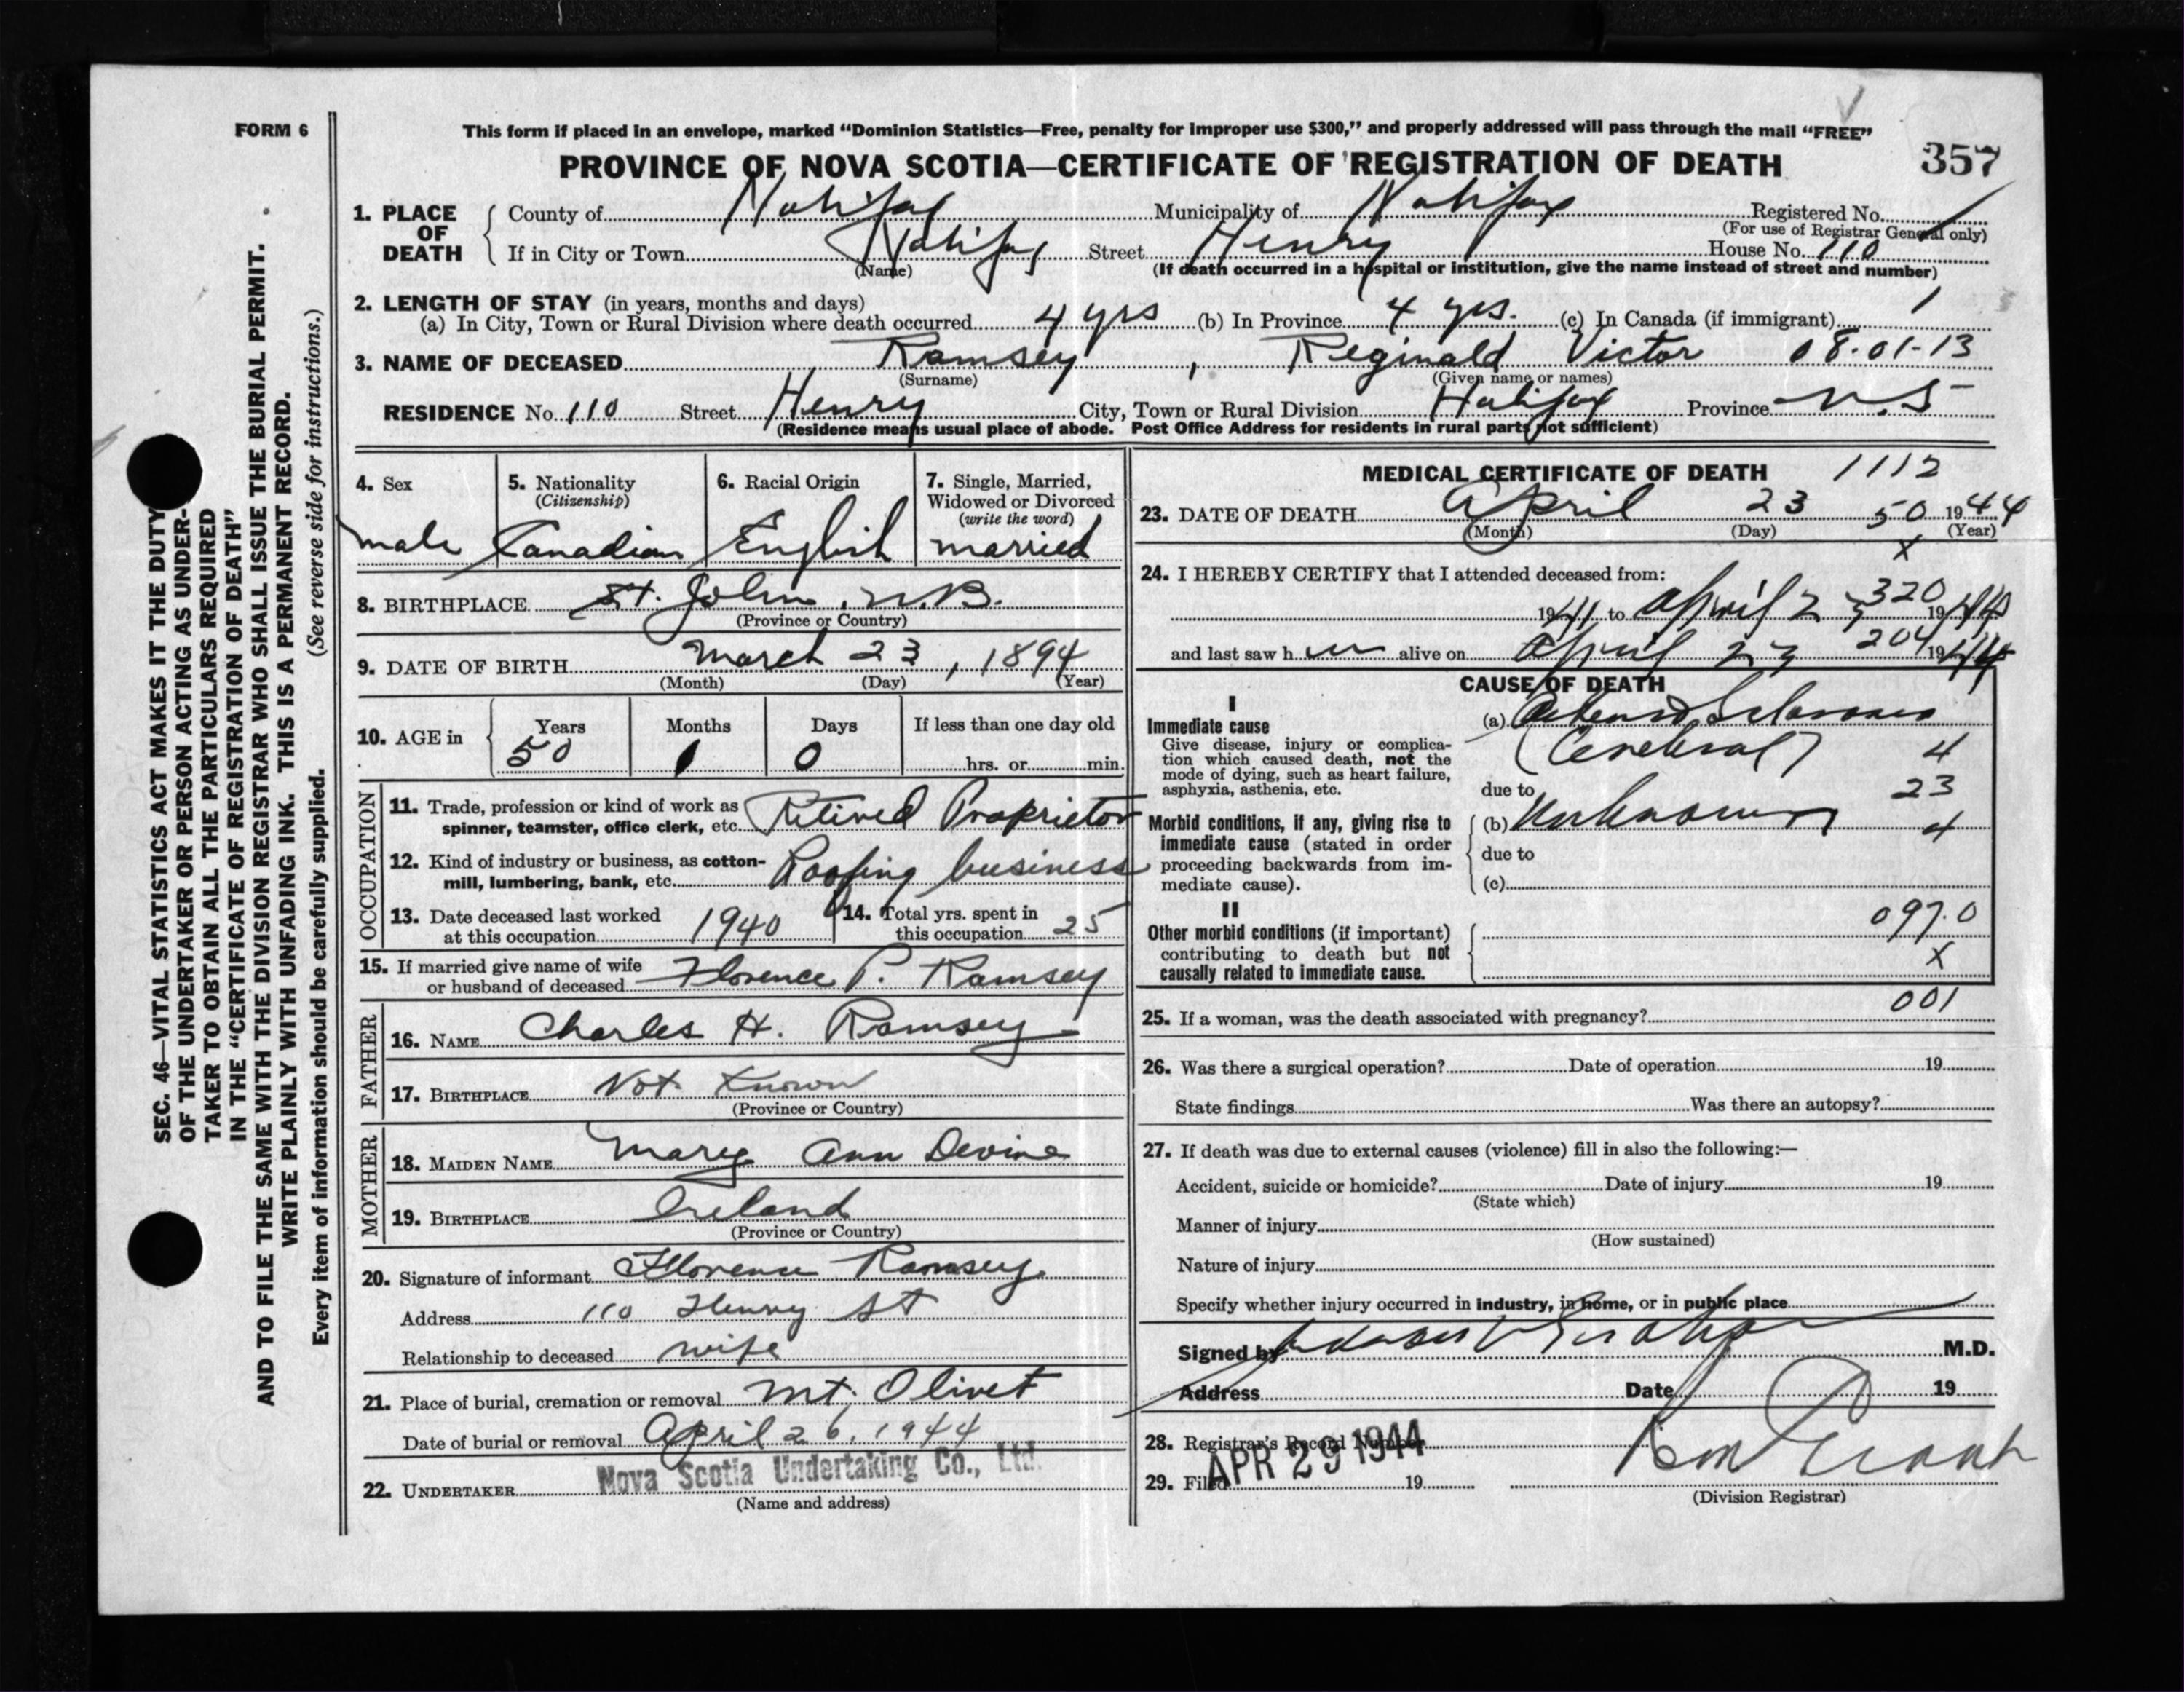 FORM 6
This form if placed in an envelope, marked “Dominion Statistics—Free, penalty for improper use $300,” and properly addressed will pass through the mail “FREE”
PROVINCE OF NOVA SCOTIA—CERTIFICATE OF REGISTRATION OF DEATH
357
1. PLACE OF DEATH
County of Halifax Municipality of Halifax Registered No.
(For use of Registrar General only)
If in City or Town Halifax Street Henry House No. 110
(Name) (If death occurred in a hospital or institution, give the name instead of street and number)
2. LENGTH OF STAY (in years, months and days)
(a) In City, Town or Rural Division where death occurred 4 yrs (b) In Province 4 yrs. (c) In Canada (if immigrant)
3. NAME OF DECEASED Ramsey, Reginald Victor 08-01-13
(Surname) (Given name or names)
RESIDENCE No. 110 Street Henry City, Town or Rural Division Halifax Province N.S
(Residence means usual place of abode. Post Office Address for residents in rural parts not sufficient)
4. Sex
male
5. Nationality
(Citizenship)
Canadian
6. Racial Origin
English
7. Single, Married,
Widowed or Divorced
(write the word)
married
8. BIRTHPLACE St. John, N.B.
(Province or Country)
9. DATE OF BIRTH March 23, 1894
(Month) (Day) (Year)
10. AGE in
Years Months Days If less than one day old
50 1 0 hrs. or min.
OCCUPATION
11. Trade, profession or kind of work as
spinner, teamster, office clerk, etc. Retired Proprietor
12. Kind of industry or business, as cotton-
mill, lumbering, bank, etc. Roofing business
13. Date deceased last worked
at this occupation 1940
14. Total yrs. spent in
this occupation 25
15. If married give name of wife
or husband of deceased Florence P. Ramsey
FATHER
16. NAME Charles H. Ramsey
17. BIRTHPLACE Not Known
(Province or Country)
MOTHER
18. MAIDEN NAME Mary Ann Devine
19. BIRTHPLACE Ireland
(Province or Country)
20. Signature of informant Florence Ramsey
Address 110 Henry St
Relationship to deceased wife
21. Place of burial, cremation or removal Mt. Olivet
Date of burial or removal April 26, 1944
22. UNDERTAKER Nova Scotia Undertaking Co., Ltd.
(Name and address)
MEDICAL CERTIFICATE OF DEATH 1112
23. DATE OF DEATH April 23 50 1944
(Month) (Day) (Year)
X
24. I HEREBY CERTIFY that I attended deceased from:
1941 to April 23 320 1944
and last saw h im alive on April 23 204 1944
CAUSE OF DEATH
I
Immediate cause
Give disease, injury or complica-
tion which caused death, not the
mode of dying, such as heart failure,
asphyxia, asthenia, etc.
(a) Arteriosclerosis
(Cerebral) 4
due to 23
Morbid conditions, if any, giving rise to
immediate cause (stated in order
proceeding backwards from im-
mediate cause).
(b) Unknown 4
due to
(c)
II
Other morbid conditions (if important)
contributing to death but not
causally related to immediate cause.
097.0
X
001
25. If a woman, was the death associated with pregnancy?
26. Was there a surgical operation? Date of operation 19
State findings Was there an autopsy?
27. If death was due to external causes (violence) fill in also the following:—
Accident, suicide or homicide? Date of injury 19
(State which)
Manner of injury
(How sustained)
Nature of injury
Specify whether injury occurred in industry, in home, or in public place
Signed by M.D.
Address Date 19
28. Registrar's Record Number
29. Filed APR 29 1944 19
(Division Registrar)
SEC. 46—VITAL STATISTICS ACT MAKES IT THE DUTY
OF THE UNDERTAKER OR PERSON ACTING AS UNDER-
TAKER TO OBTAIN ALL THE PARTICULARS REQUIRED
IN THE “CERTIFICATE OF REGISTRATION OF DEATH”
AND TO FILE THE SAME WITH THE DIVISION REGISTRAR WHO SHALL ISSUE THE BURIAL PERMIT.
WRITE PLAINLY WITH UNFADING INK. THIS IS A PERMANENT RECORD.
Every item of information should be carefully supplied. (See reverse side for instructions.)